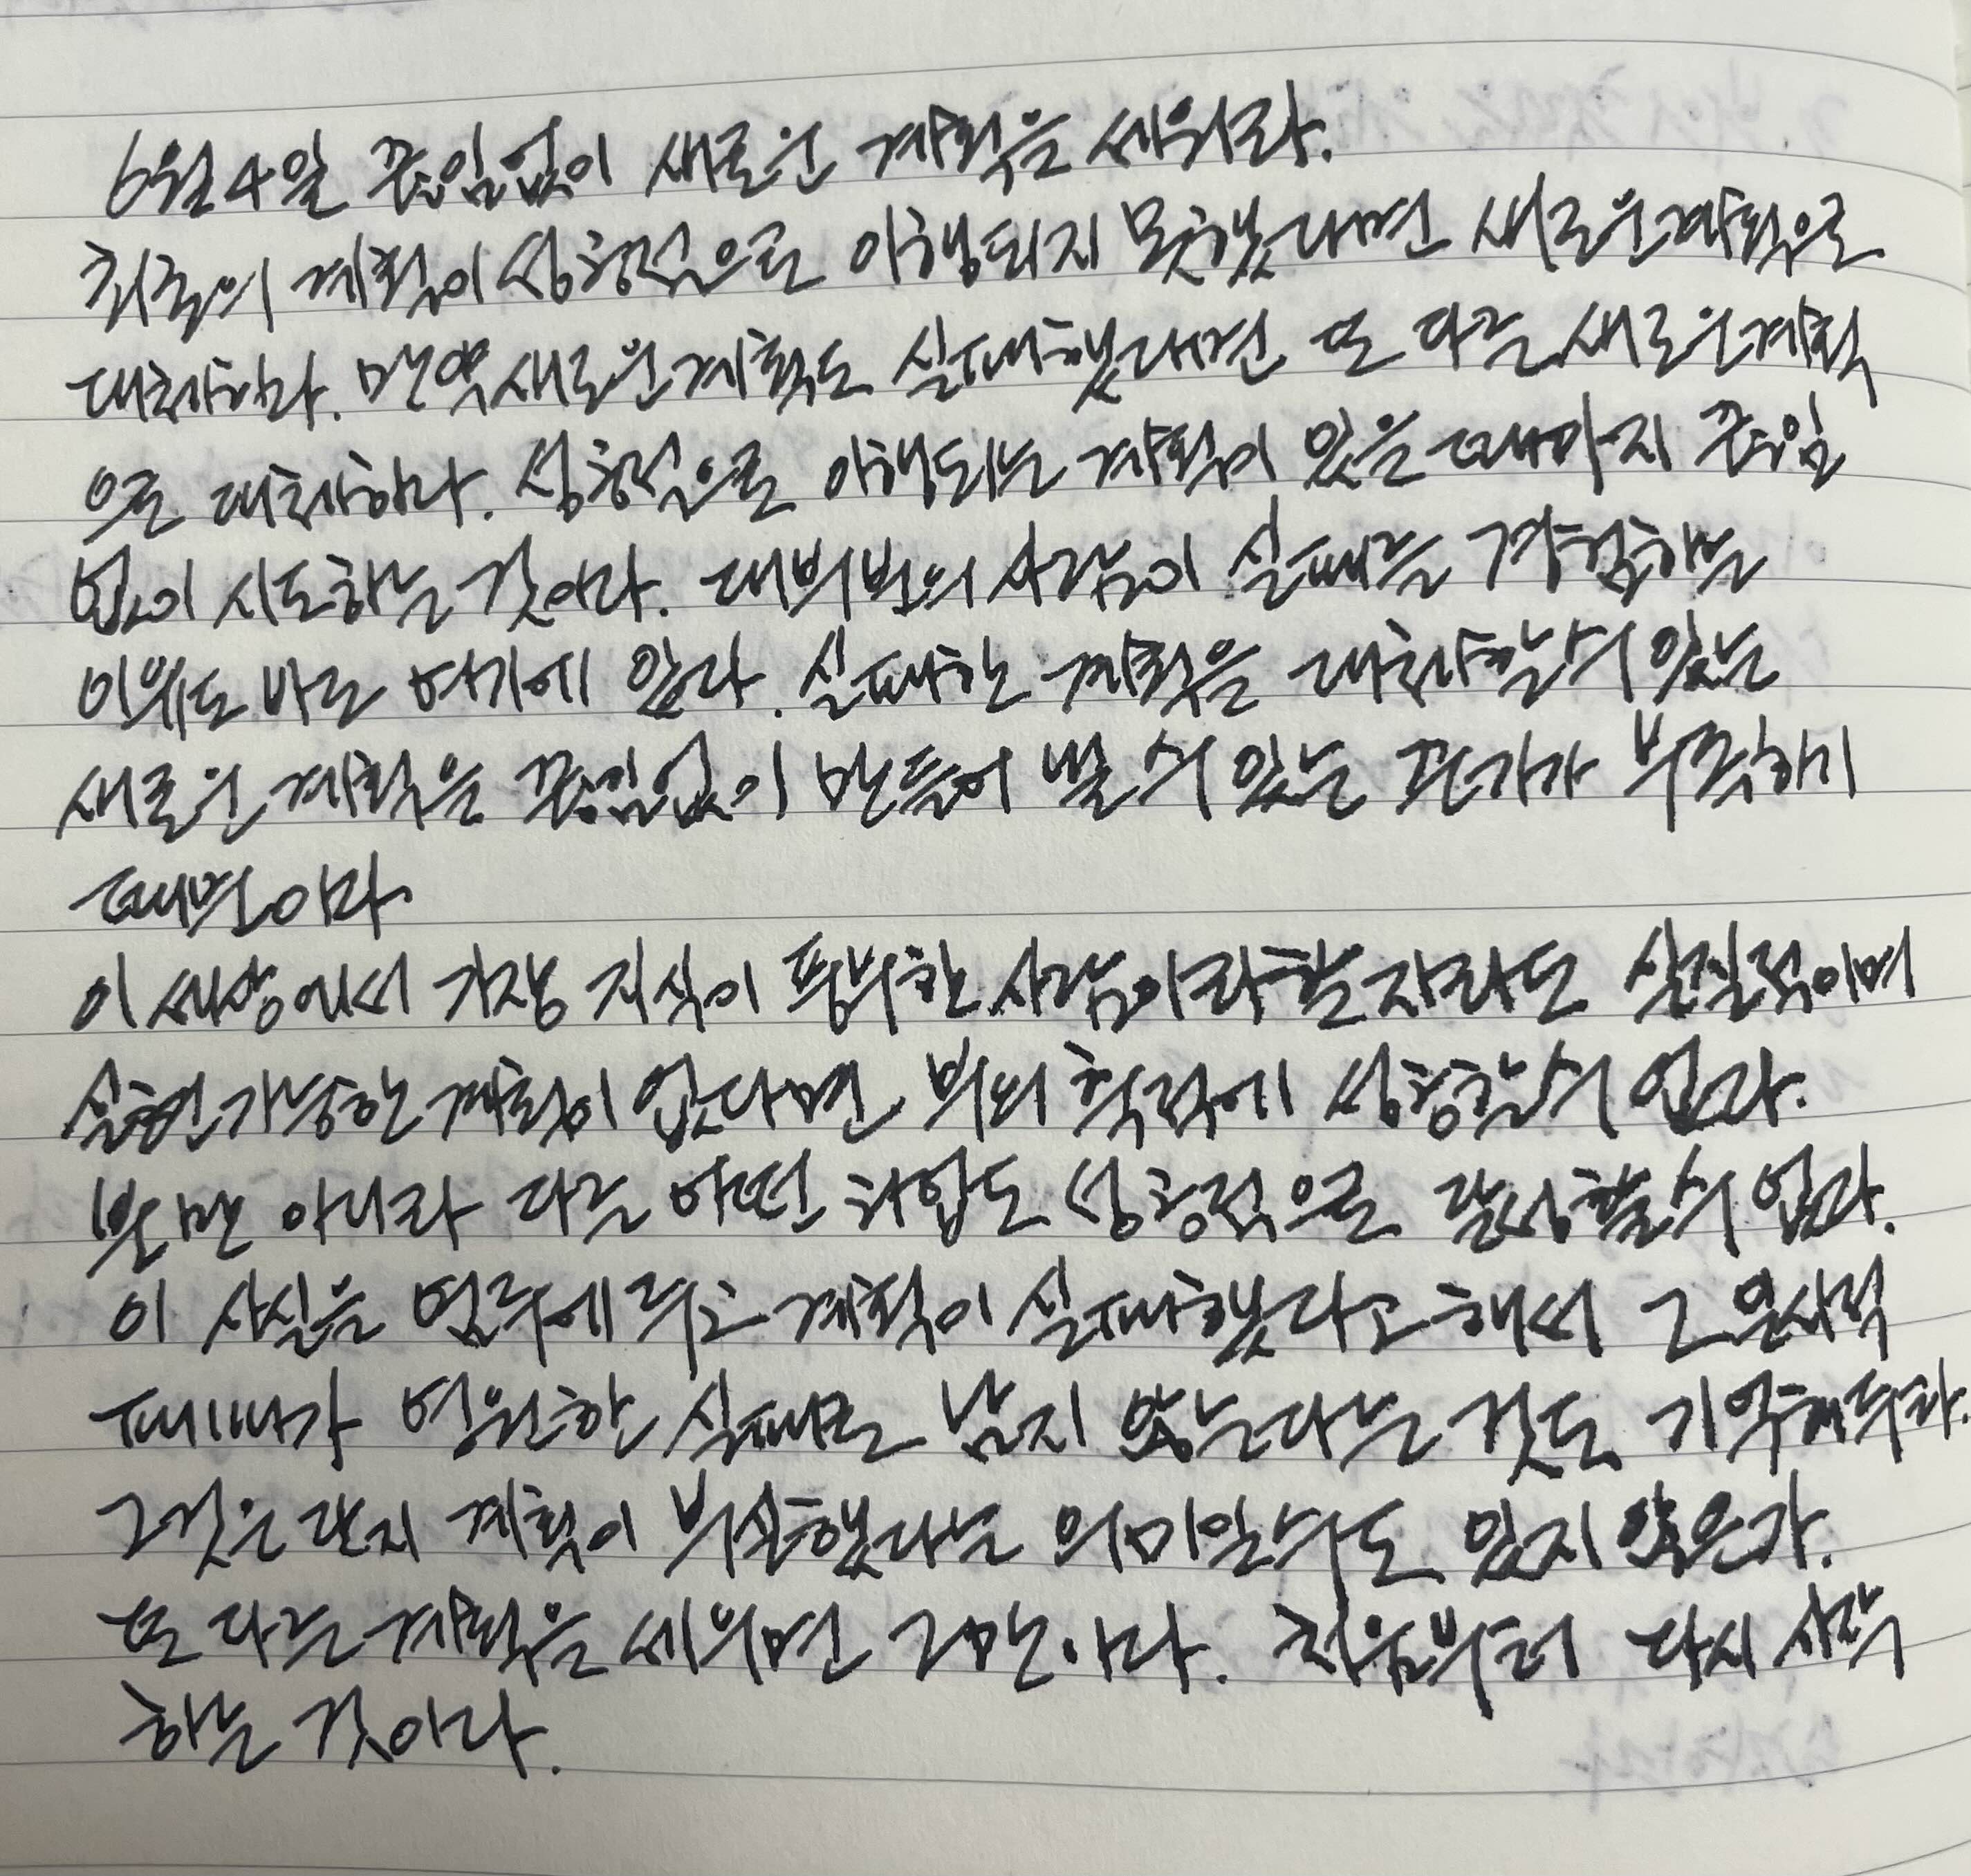 6월4일 끊임없이 새로운 계획을 세워라.
최초의 계획이 성공적으로 이행되지 못했다면 새로운계획으로
대체하라. 만약 새로운계획도 실패했다면 또 다른 새로운계획
으로 대체하라. 성공적으로 이행되는 계획이 있을 때까지 끊임
없이 시도하는 것이다. 대부분의 사람이 실패를 경험하는
이유도 바로 여기에 있다. 실패한 계획을 대체할수 있는
새로운 계획을 끊임없이 만들어 낼 수 있는 끈기가 부족하기
때문이다
이 세상에서 가장 지식이 풍부한 사람이라 할지라도 실질적이며
실현가능한 계획이 없다면 부의 축적에 성공할수 없다.
뿐만 아니라 다른 어떤 사업도 성공적으로 달성할수 없다.
이 사실을 염두에 두고 계획이 실패했다고 해서 그 일시적
패배가 영원한 실패로 남지 않는다는 것도 기억해두라.
그것은 단지 계획이 부실했다는 의미일수도 있지 않은가.
또 다른 계획을 세우면 그만이다. 처음부터 다시 시작
하는 것이다.